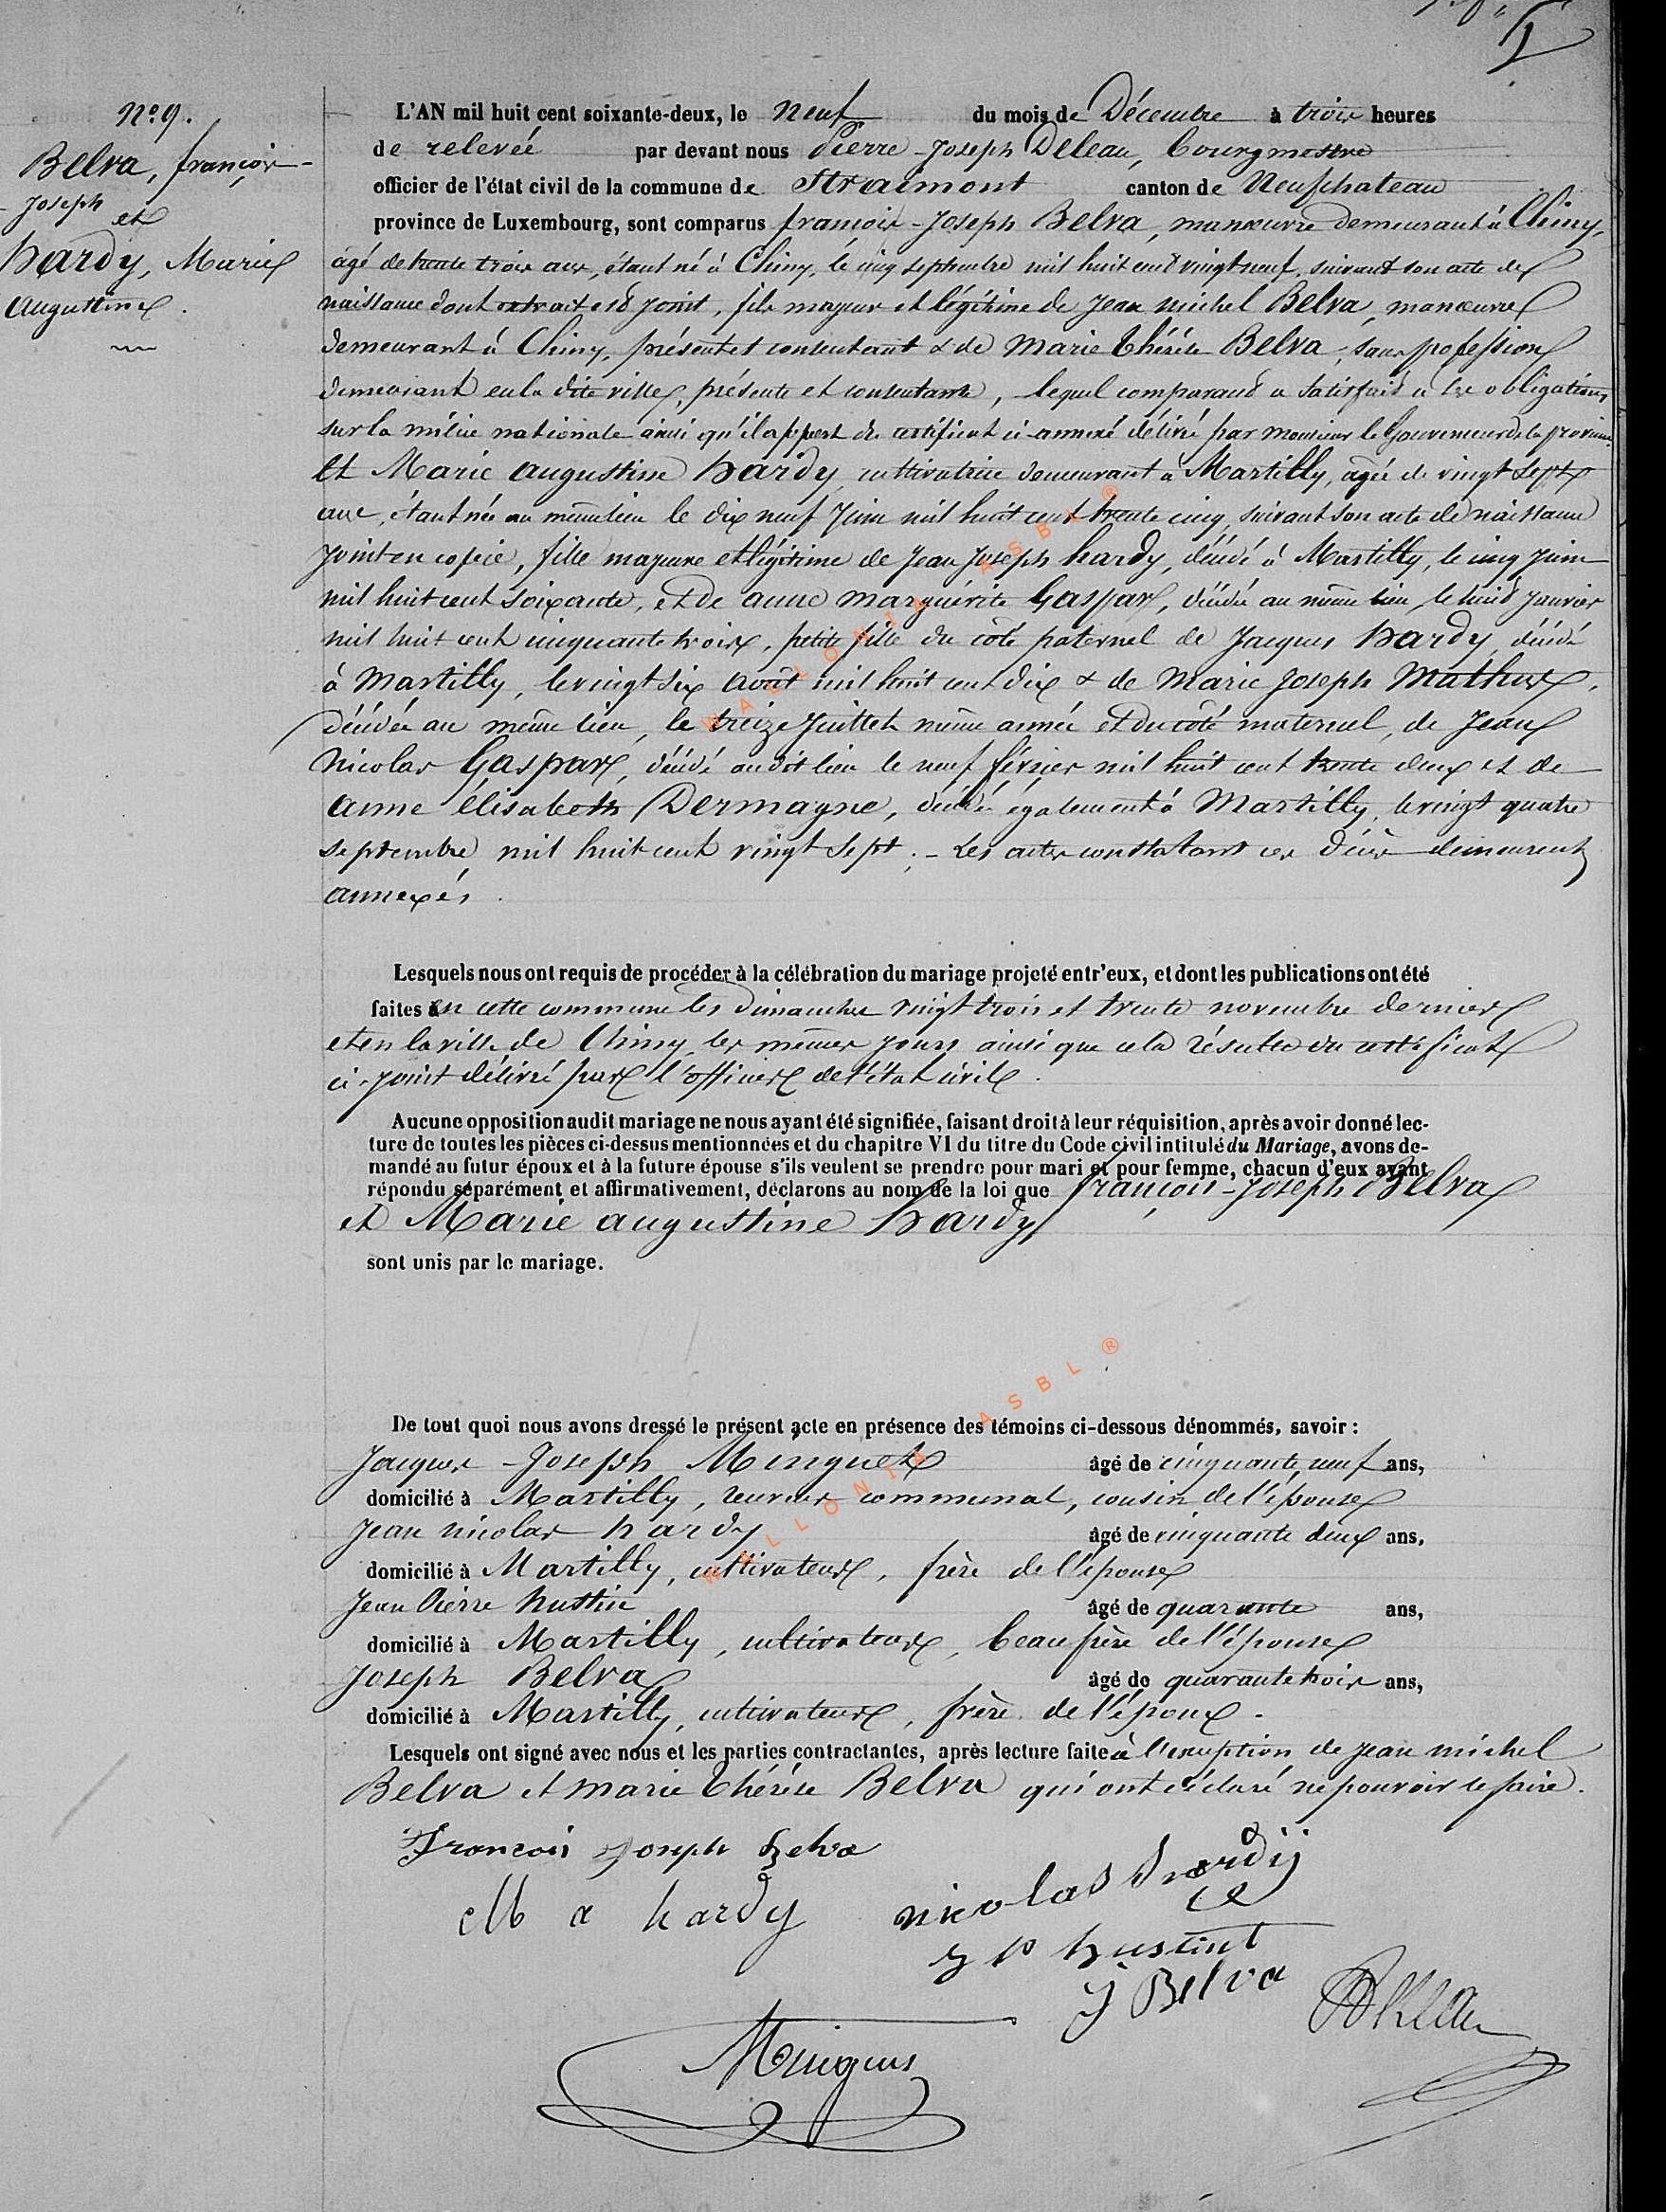 N.o 9.
Belva, françois-
Joseph
et
hardy, Marie
Augustine.
L'AN mil huit cent soixante-deux, le Neuf du mois de Décembre à trois heures
de relevée par devant nous Pierre-Joseph Deleau, bourgmestre
officier de l'état civil de la commune de Straimont canton de Neufchateau
province de Luxembourg, sont comparus françois-Joseph Belva, manœuvre demeurant à Chiny,
âgé de trente trois ans, étant né à Chiny, le cinq septembre mil huit cent vingt neuf, suivant son acte de
naissance dont extrait est joint, fils majeur et légitime de Jean michel Belva, manœuvre
demeurant à Chiny, présent et consentant & de Marie Thérèse Belva, sans profession
demeurant en la dite ville, présente et consentante, lequel comparant a satisfait à ses obligations
sur la milice nationale ainsi qu'il appert du certificat ci-annexé délivré par monsieur le Gouverneur de la province.
Et Marie Augustine hardy, cultivatrice demeurant à Martilly, agée de vingt sept
ans, étant née au même lieu le dix neuf Juin mil huit cent trente cinq, suivant son acte de naissance
joint en copie, fille majeure et légitime de Jean Joseph hardy, décédé à Martilly, le cinq juin
mil huit cent soixante, et de anne Marguérite Gaspar, décédée au même lieu le huit janvier
mil huit cent cinquante trois, petite fille du côté paternel de Jacques hardy, décédé
à Martilly, le vingt six Août mil huit cent dix & de Marie Joseph Mathus,
décédée au même lieu, le treize Juillet même année et du côté maternel, de Jean
Nicolas Gaspar, décédé au dit lieu le neuf février mil huit cent trente deux et de
anne élisabeth Dermagne, décédée également à Martilly, le vingt quatre
septembre mil huit cent vingt sept.- Les actes constatant ces décès demeurent
annexés.
Lesquels nous ont requis de procéder à la célébration du mariage projeté entr'eux, et dont les publications ont été
faites en cette commune les dimanches vingt trois et trente novembre dernier
et en la ville de Chiny les mêmes jours ainsi que cela résulte du certificat
ci-joint délivré par l'officier de l'état civil.
Aucune opposition audit mariage ne nous ayant été signifiée, faisant droit à leur réquisition, après avoir donné lec-
ture de toutes les pièces ci-dessus mentionnées et du chapitre VI du titre du Code civil intitulé du Mariage, avons de-
mandé au futur époux et à la future épouse s'ils veulent se prendre pour mari et pour femme, chacun d'eux ayant
répondu séparément et affirmativement, déclarons au nom de la loi que françois-Joseph Belva
et Marie augustine hardy
sont unis par le mariage.
De tout quoi nous avons dressé le présent acte en présence des témoins ci-dessous dénommés, savoir :
Jacques-Joseph Minguet âgé de cinquante neuf ans,
domicilié à Martilly, receveur communal, cousin de l'épouse
Jean nicolas hardy âgé de cinquante deux ans,
domicilié à Martilly, cultivateur, frère de l'épouse
Jean Pierre hustin âgé de quarante ans,
domicilié à Martilly, cultivateur, beau frère de l'épouse
Joseph Belva âgé de quarante trois ans,
domicilié à Martilly, cultivateur, frère de l'époux.
Lesquels ont signé avec nous et les parties contractantes, après lecture faite à l'exception de Jean michel
Belva et Marie Thérèse Belva qui ont déclaré ne pouvoir le faire.
François Joseph Belva
M a hardy nicolas hardÿ
j p hustint
J Belva
WALLONIA ASBL ®
WALLONIA ASBL ®